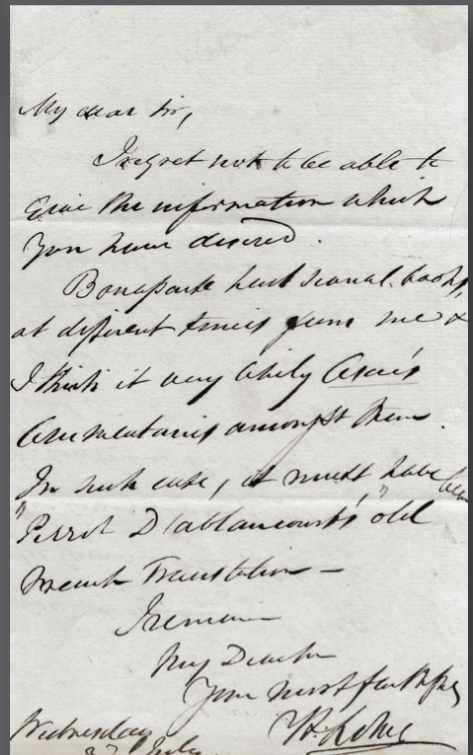 My dear Sir,
I regret not to be able to
give the information which
you have desired.
Bonaparte had several books,
at different times from me &
I think it very likely Cæsar's
Commentaries amongst them.
In such case, it must have been
"Perrot D'ablancourt's" old
French Translation —
I remain
My Dear Sir
Your most faithfully
Wednesday
July